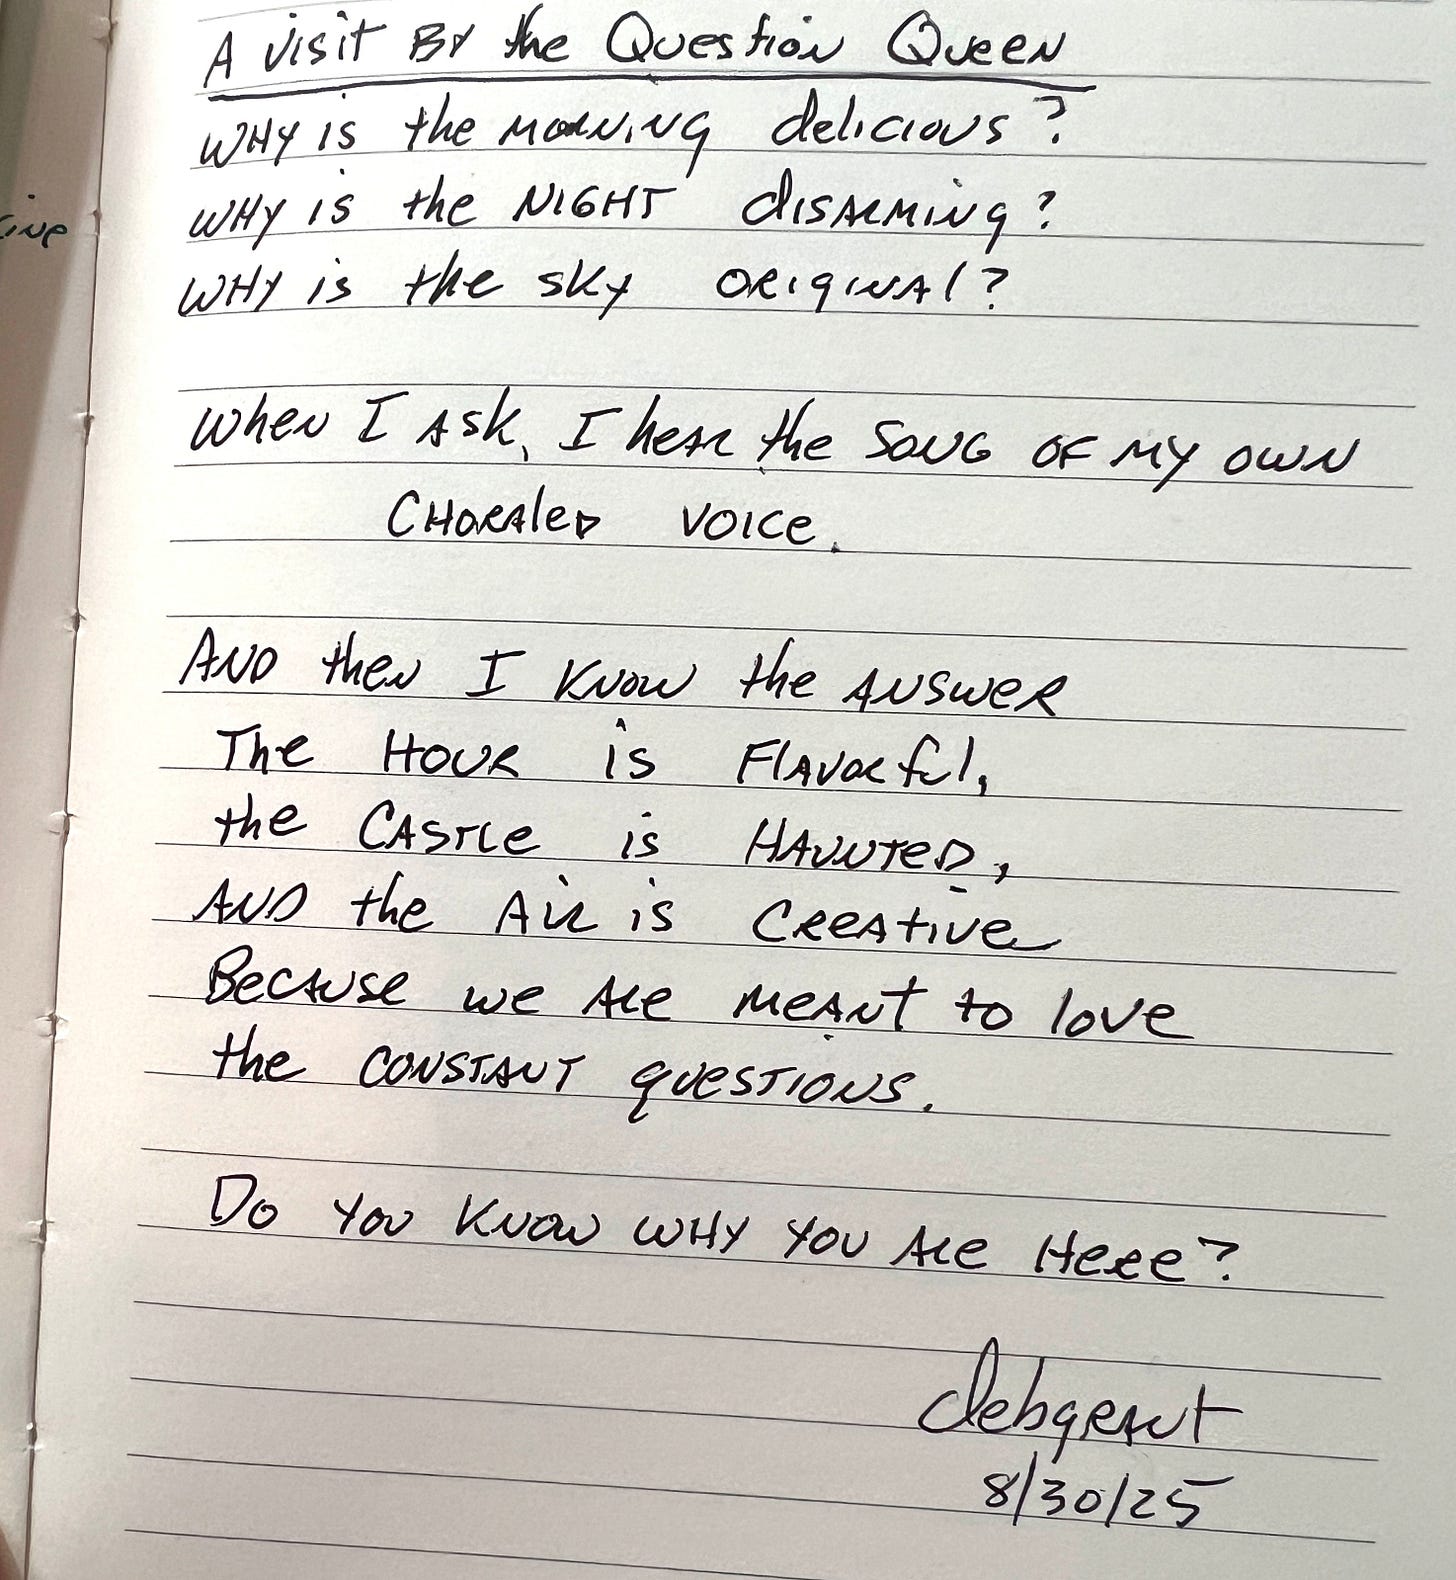 A Visit By the Question Queen
Why is the morning delicious?
Why is the night disarming?
Why is the sky original?
When I ask, I hear the song of my own
choraled voice.
And then I know the answer
The hour is flavorful,
the castle is haunted,
and the air is creative
Because we are meant to love
the constant questions.
Do you know why you are here?
debgrant
8/30/25